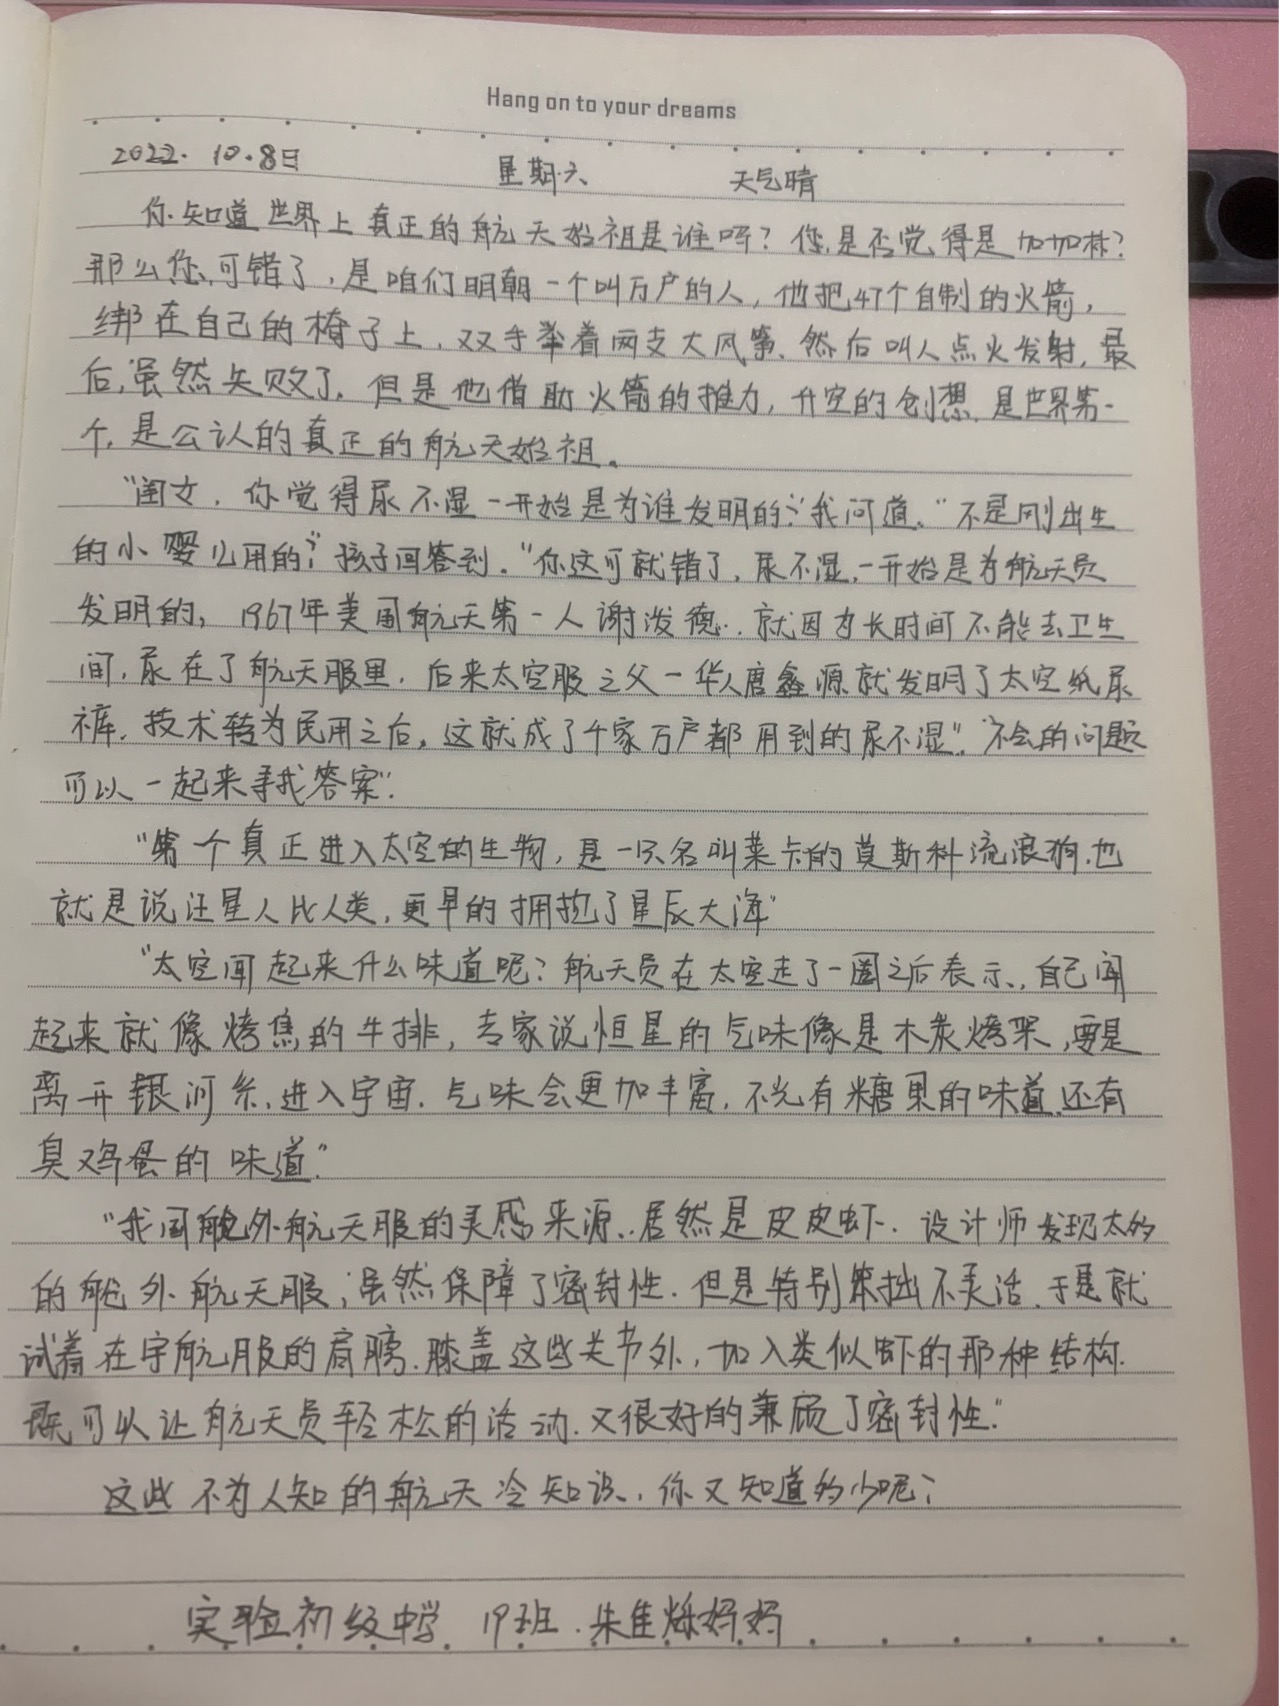 Hang on to your dreams
2022.10.8日 星期六 天气晴
你知道世界上真正的航天始祖是谁吗?您是否觉得是加加林?
那么您可错了,是咱们明朝一个叫万户的人,他把47个自制的火箭,
绑在自己的椅子上,双手举着两支大风筝、然后叫人点火发射,最
后,虽然失败了,但是他借助火箭的推力,升空的创想,是世界第一
个,是公认的真正的航天始祖。
"闺女,你觉得尿不湿一开始是为谁发明的?"我问道、"不是刚出生
的小婴儿用的?"孩子回答到."你这可就错了,尿不湿,一开始是为航天员
发明的,1967年美国航天第一人谢泼德..就因为长时间不能去卫生
间,尿在了航天服里,后来太空服之父一华人唐鑫源就发明了太空纸尿
裤.技术转为民用之后,这就成了千家万户都用到的尿不湿"."不会的问题
可以一起来寻找答案".
"第一个真正进入太空的生物,是一只名叫莱卡的莫斯科流浪狗.也
就是说汪星人比人类,更早的拥抱了星辰大海"
"太空闻起来什么味道呢?航天员在太空走了一圈之后表示,自己闻
起来就像烤焦的牛排,专家说恒星的气味像是木炭烤架,要是
离开银河系,进入宇宙.气味会更加丰富,不光有糖果的味道,还有
臭鸡蛋的味道."
"我国舱外航天服的灵感来源..居然是皮皮虾.设计师发现太的
的舱外航天服,虽然保障了密封性.但是特别笨拙不灵活.于是就
试着在宇航服的肩膀.膝盖这些关节外,加入类似虾的那种结构.
既可以让航天员轻松的活动.又很好的兼顾了密封性."
这些不为人知的航天冷知识,你又知道多少呢?
实验初级中学 19班.朱佳烁妈妈